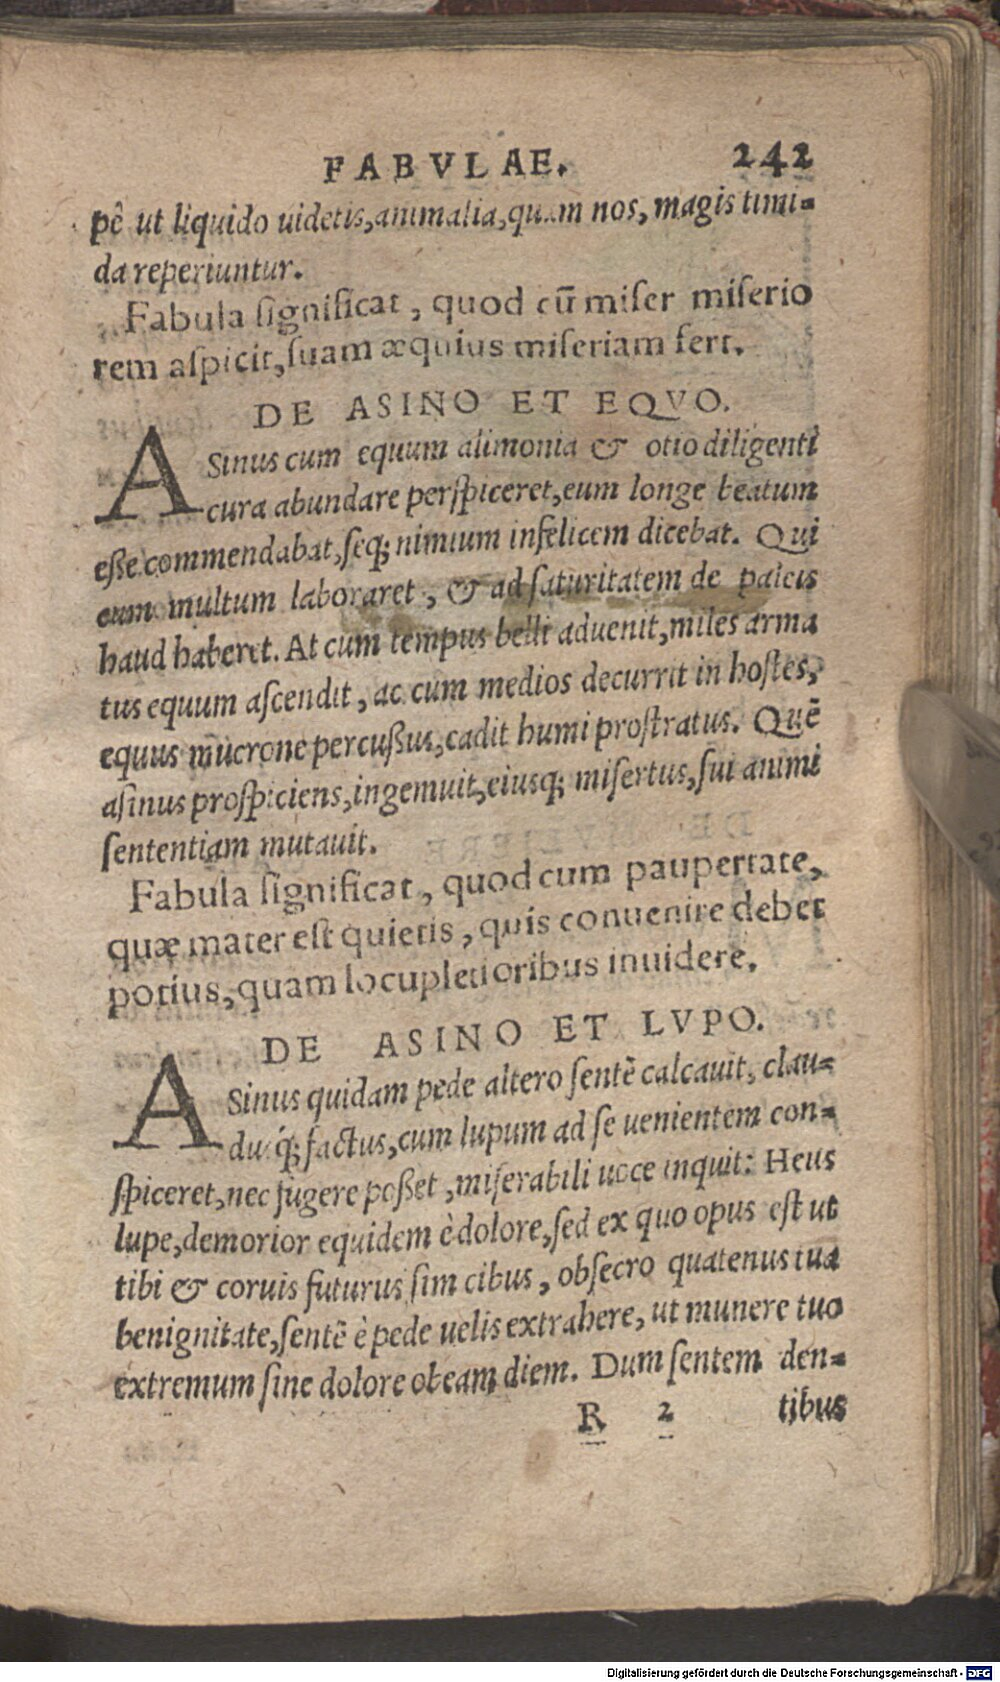 FABVLAE. 242
pẽ ut liquido uidetis, animalia, quam nos, magis timi-
da reperiuntur.
Fabula ſignificat, quod cū miſer miſerio
rem aſpicit, ſuam æquius miſeriam fert.
DE ASINO ET EQVO.
ASinus cum equum alimonia & otio diligenti
cura abundare perſpiceret, eum longe beatum
eſſe commendabat, ſeq; nimium infelicem dicebat. Qui
cum multum laboraret, & ad ſaturitatem de paleis
haud haberet. At cum tempus belli aduenit, miles arma
tus equum aſcendit, ac cum medios decurrit in hoſtes,
equus mucrone percuſſus, cadit humi proſtratus. Quẽ
aſinus proſpiciens, ingemuit, eiusq; miſertus, ſui animi
ſententiam mutauit.
Fabula ſignificat, quod cum paupertate,
quæ mater eſt quietis, quis conuenire debet
potius, quam locupletioribus inuidere.
DE ASINO ET LVPO.
ASinus quidam pede altero ſentẽ calcauit, clau-
duśq; factus, cum lupum ad ſe uenientem con-
ſpiceret, nec fugere poſſet, miſerabili uoce inquit: Heus
lupe, demorior equidem è dolore, ſed ex quo opus eſt ut
tibi & coruis futurus ſim cibus, obſecro quatenus tua
benignitate, ſentẽ è pede uelis extrahere, ut munere tuo
extremum ſine dolore obeam diem. Dum ſentem den-
R 2 tibus
Digitalisierung gefördert durch die Deutsche Forschungsgemeinschaft - DFG